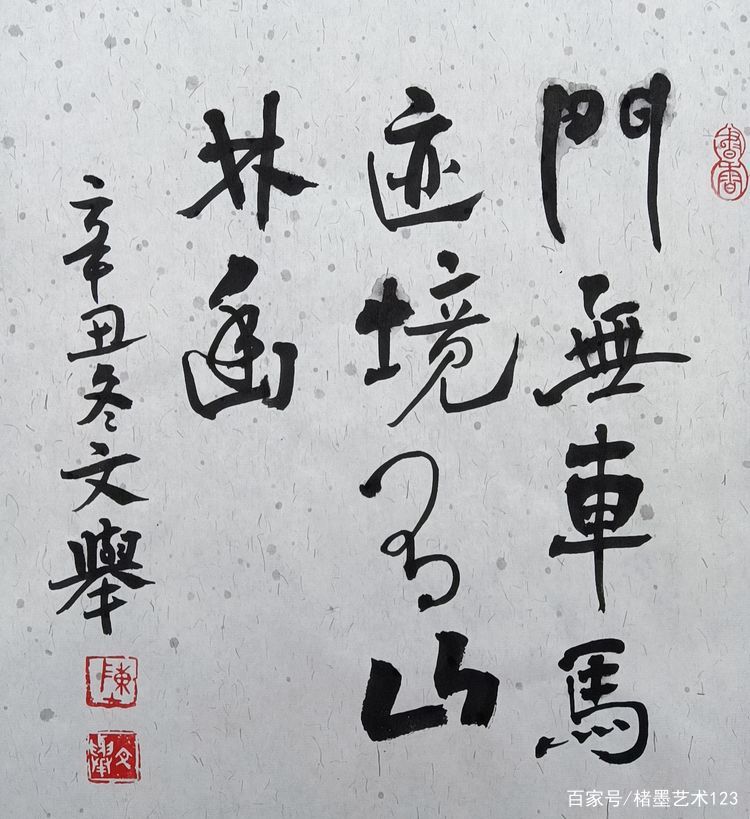 門無車馬
迹境有山
林幽
辛丑冬文舉
書香
陳
文舉
百家号/楮墨艺术123